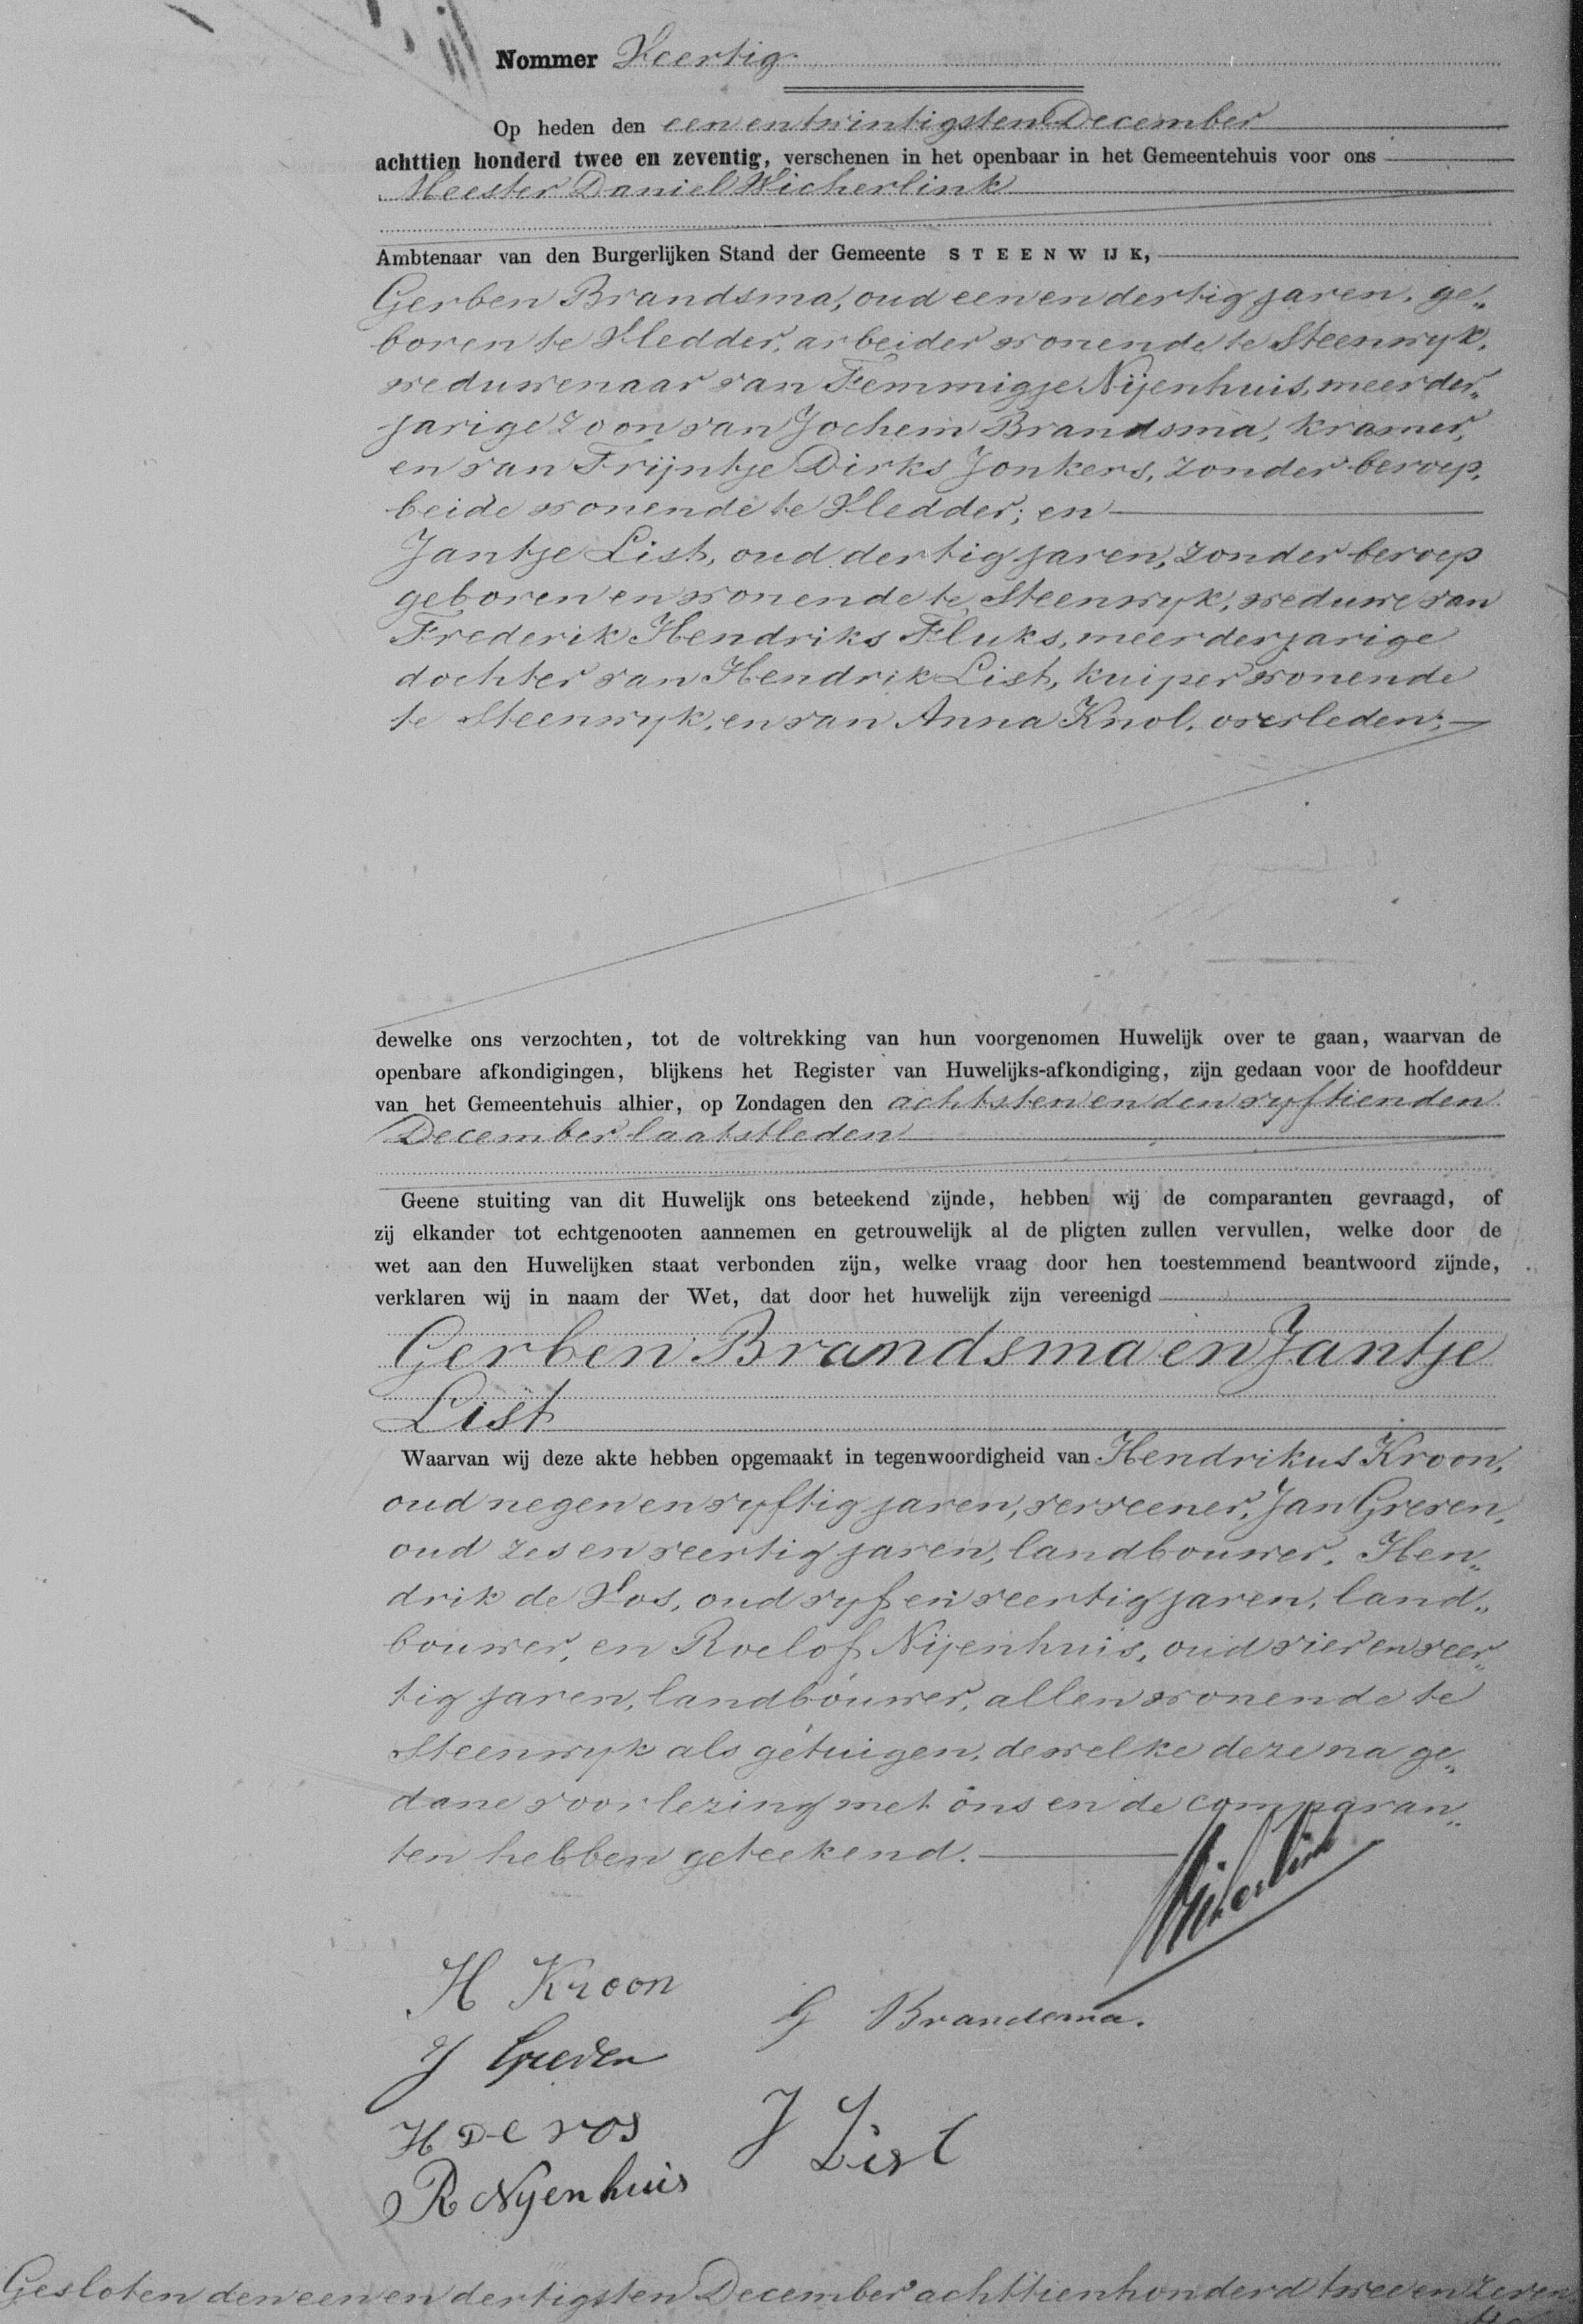 Nommer Veertig
Op heden den een en twintigsten December
achttien honderd twee en zeventig, verschenen in het openbaar in het Gemeentehuis voor ons
Meester Daniel Wicherlink
Ambtenaar van den Burgerlijken Stand der Gemeente STEENWIJK,
Gerben Brandsma, oud een en dertig jaren, ge„
boren te Vledder, arbeider wonende te Steenwyk,
weduwenaar van Femmigje Nijenhuis, meerder„
jarige zoon van Jochem Brandsma, kramer,
en van Trijntje Dirks Jonkers, zonder beroep,
beide wonende te Vledder; en
Jantje List, oud dertig jaren, zonder beroep
geboren en wonende te Steenwyk, weduwe van
Frederik Hendriks Fluks, meerderjarige
dochter van Hendrik List, kuiper wonende
te Steenwyk, en van Anna Knol, overleden;
dewelke ons verzochten, tot de voltrekking van hun voorgenomen Huwelijk over te gaan, waarvan de
openbare afkondigingen, blijkens het Register van Huwelijks-afkondiging, zijn gedaan voor de hoofddeur
van het Gemeentehuis alhier, op Zondagen den achtsten en den vyftienden
December laatstleden
Geene stuiting van dit Huwelijk ons beteekend zijnde, hebben wij de comparanten gevraagd, of
zij elkander tot echtgenooten aannemen en getrouwelijk al de pligten zullen vervullen, welke door de
wet aan den Huwelijken staat verbonden zijn, welke vraag door hen toestemmend beantwoord zijnde,
verklaren wij in naam der Wet, dat door het huwelijk zijn vereenigd
Gerben Brandsma en Jantje
List
Waarvan wij deze akte hebben opgemaakt in tegenwoordigheid van Hendrikus Kroon,
oud negen en vyftig jaren, verveener, Jan Greven,
oud zes en veertig jaren, landbouwer, Hen„
drik de Vos, oud vyf en veertig jaren, land„
bouwer, en Roelof Nijenhuis, oud vier en veer„
tig jaren, landbouwer, allen wonende te
Steenwyk als getuigen, dewelke deze na ge„
dane voorlezing met ons en de comparan„
ten hebben geteekend.
Wicherlink
H Kroon
G Brandsma.
J Greven
H De vos
J List
R Nyenhuis
Gesloten den een en dertigsten December achttienhonderd twee en zeven